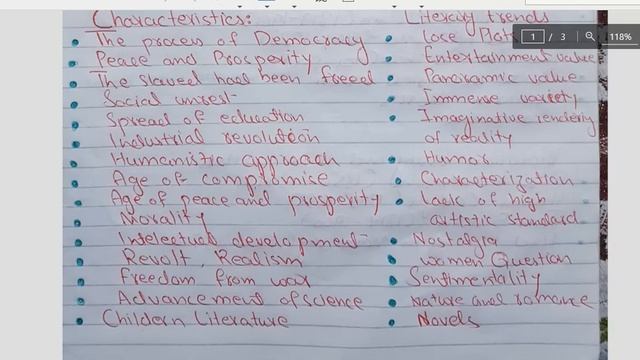 Characteristics:
The process of Democracy
Peace and Prosperity
The slaved had been freed
Social unrest
Spread of education
Industrial revolution
Humanistic approach
Age of compromise
Age of peace and prosperity
Morality
Intelectual development
Revolt, Realism
Freedom from war
Advancement of science
Childern Literature
Literary trends
Lose Plot
Entertainment value
Panoramic value
Immense variety
Imaginative rendering
of reality
Humor
Characterization
Lack of high
artistic standard
Nostalgia
women Question
Sentimentality
Nature and romance
Novels
1 / 3
118%